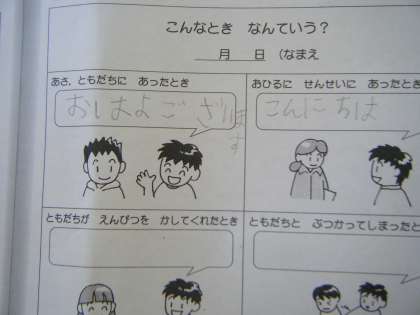 こんなとき なんていう？
月 日 (なまえ
あさ、ともだちに あったとき
おはよ ご ざいま
す
おひるに せんせいに あったとき
こんにちは
ともだちが えんぴつを かしてくれたとき
ともだちと ぶつかってしまったと